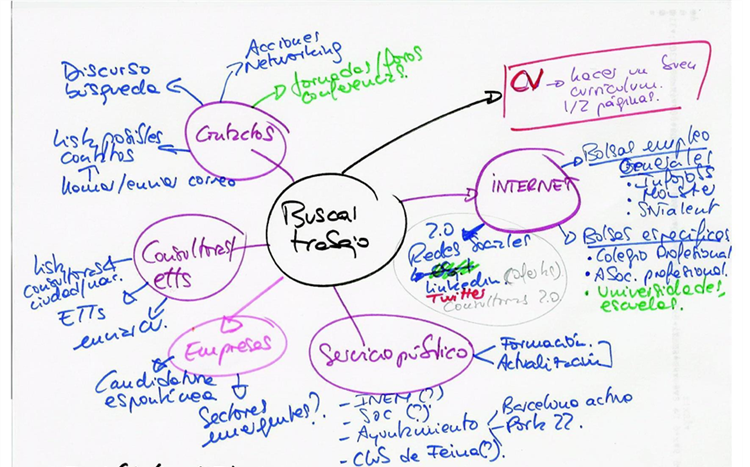 Acciones
Networking
Jornadas/foros
conferencias.
Discurso
búsqueda
Contactos
Lista posibles
contactos
llamar/enviar correo
CV → haces un buen
curriculum.
1/2 páginas.
Buscar
trabajo
INTERNET
Bolsas empleo
generales
• Infojobs
• Monster
Bolsas específicas
• Colegio Profesional
• Asoc. profesional.
• Universidades,
escuelas.
2.0
Redes Sociales
Linkedin (ofertas)
Twitter
Consultoras 2.0.
Consultoras/
etts
Lista
consultoras
ciudad/nac.
ETTs
enviar CV.
Empresas
Candidatura
espontánea
Sectores
emergentes?
Servicio público
Formación.
Actualización
- INEM (?)
- SOC (?)
- Ayuntamiento
Barcelona activa
Porta 22.
- Club de Feina (?).